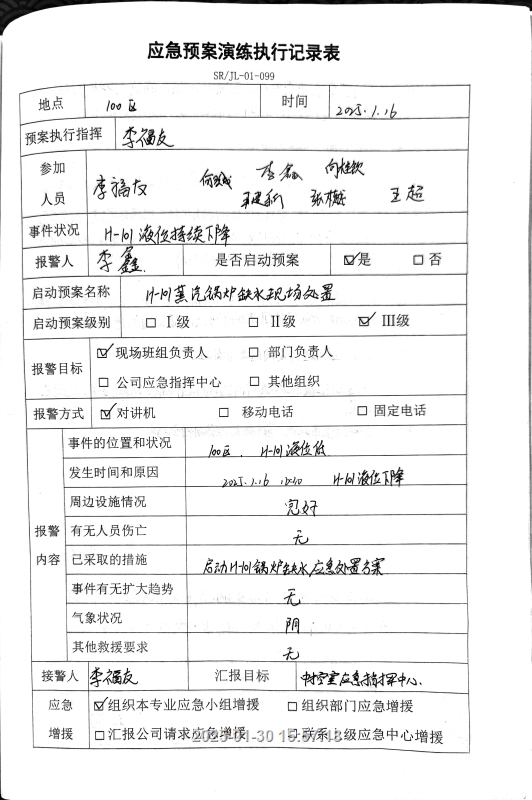 应急预案演练执行记录表
SR/JL-01-099
地点 100区 时间 2025.1.16
预案执行指挥 李福友
参加人员 李福友 李鑫 王超
事件状况 H-101液位持续下降
报警人 李鑫. 是否启动预案 ☑是 □否
启动预案名称 H-101蒸汽锅炉缺水现场处置
启动预案级别 □Ⅰ级 □Ⅱ级 ☑Ⅲ级
报警目标 ☑现场班组负责人 □部门负责人
□公司应急指挥中心 □其他组织
报警方式 ☑对讲机 □移动电话 □固定电话
报警内容
事件的位置和状况 100区、H-101液位低
发生时间和原因 2025.1.16 H-101液位下降
周边设施情况 完好
有无人员伤亡 无
已采取的措施 启动H-101锅炉缺水应急处置方案
事件有无扩大趋势 无
气象状况 阴
其他救援要求 无
接警人 李福友 汇报目标 中控室应急指挥中心.
应急增援 ☑组织本专业应急小组增援 □组织部门应急增援
□汇报公司请求应急增援 □联系上级应急中心增援